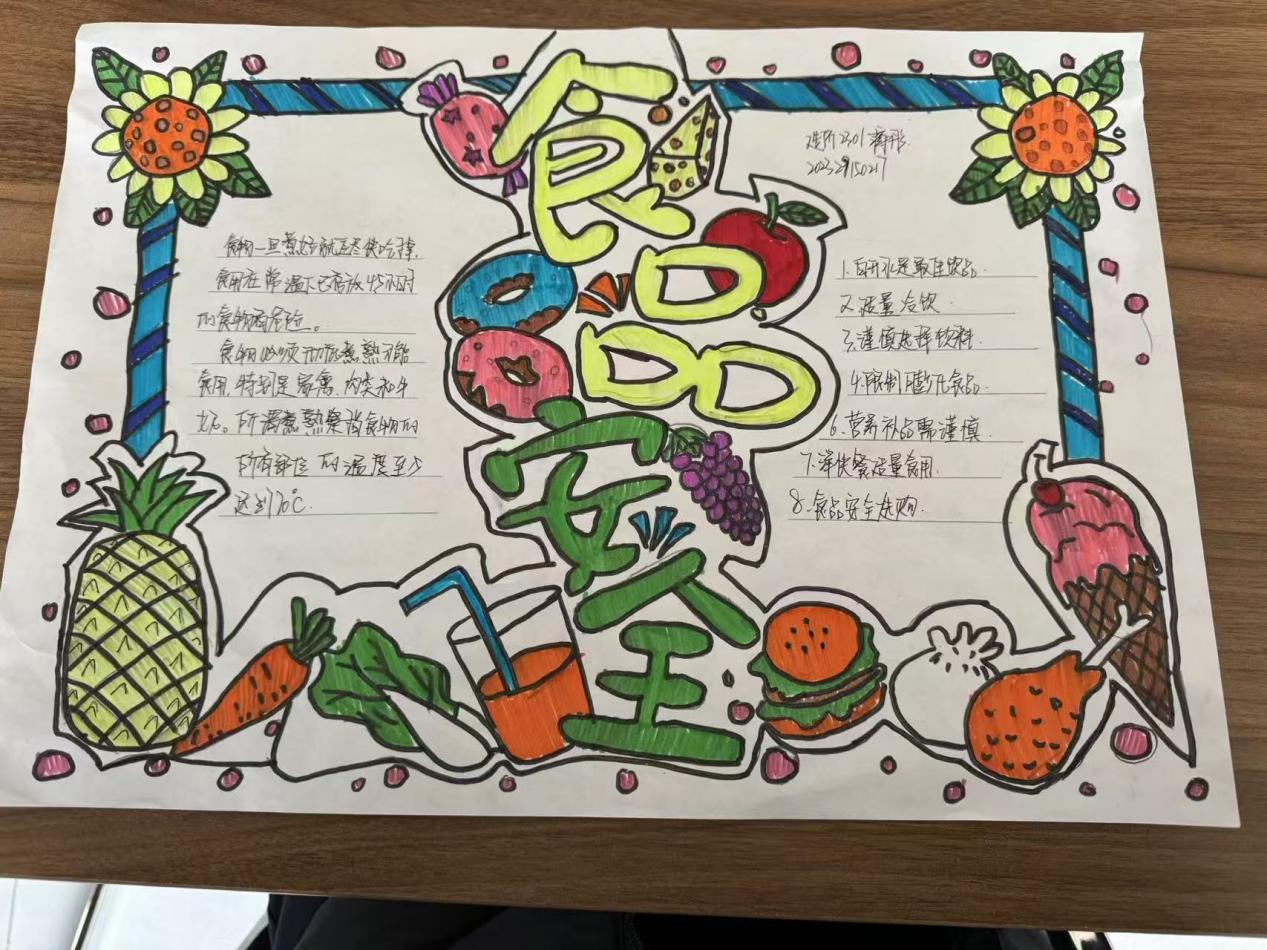 食品安全
2301
食物一旦煮好就应尽快吃掉,
食用在常温下已存放4、5小时
的食物有危险。
食物必须彻底煮熟才能
食用,特别是家禽、肉类和牛
奶。所谓煮熟是指食物的
所有部位的温度至少
达到70℃.
1.白开水是最佳饮品.
2.适量冷饮.
3.谨慎选择饮料.
4.限制膨化食品.
6.营养补品需谨慎.
7.洋快餐适量食用.
8.食品安全选购.